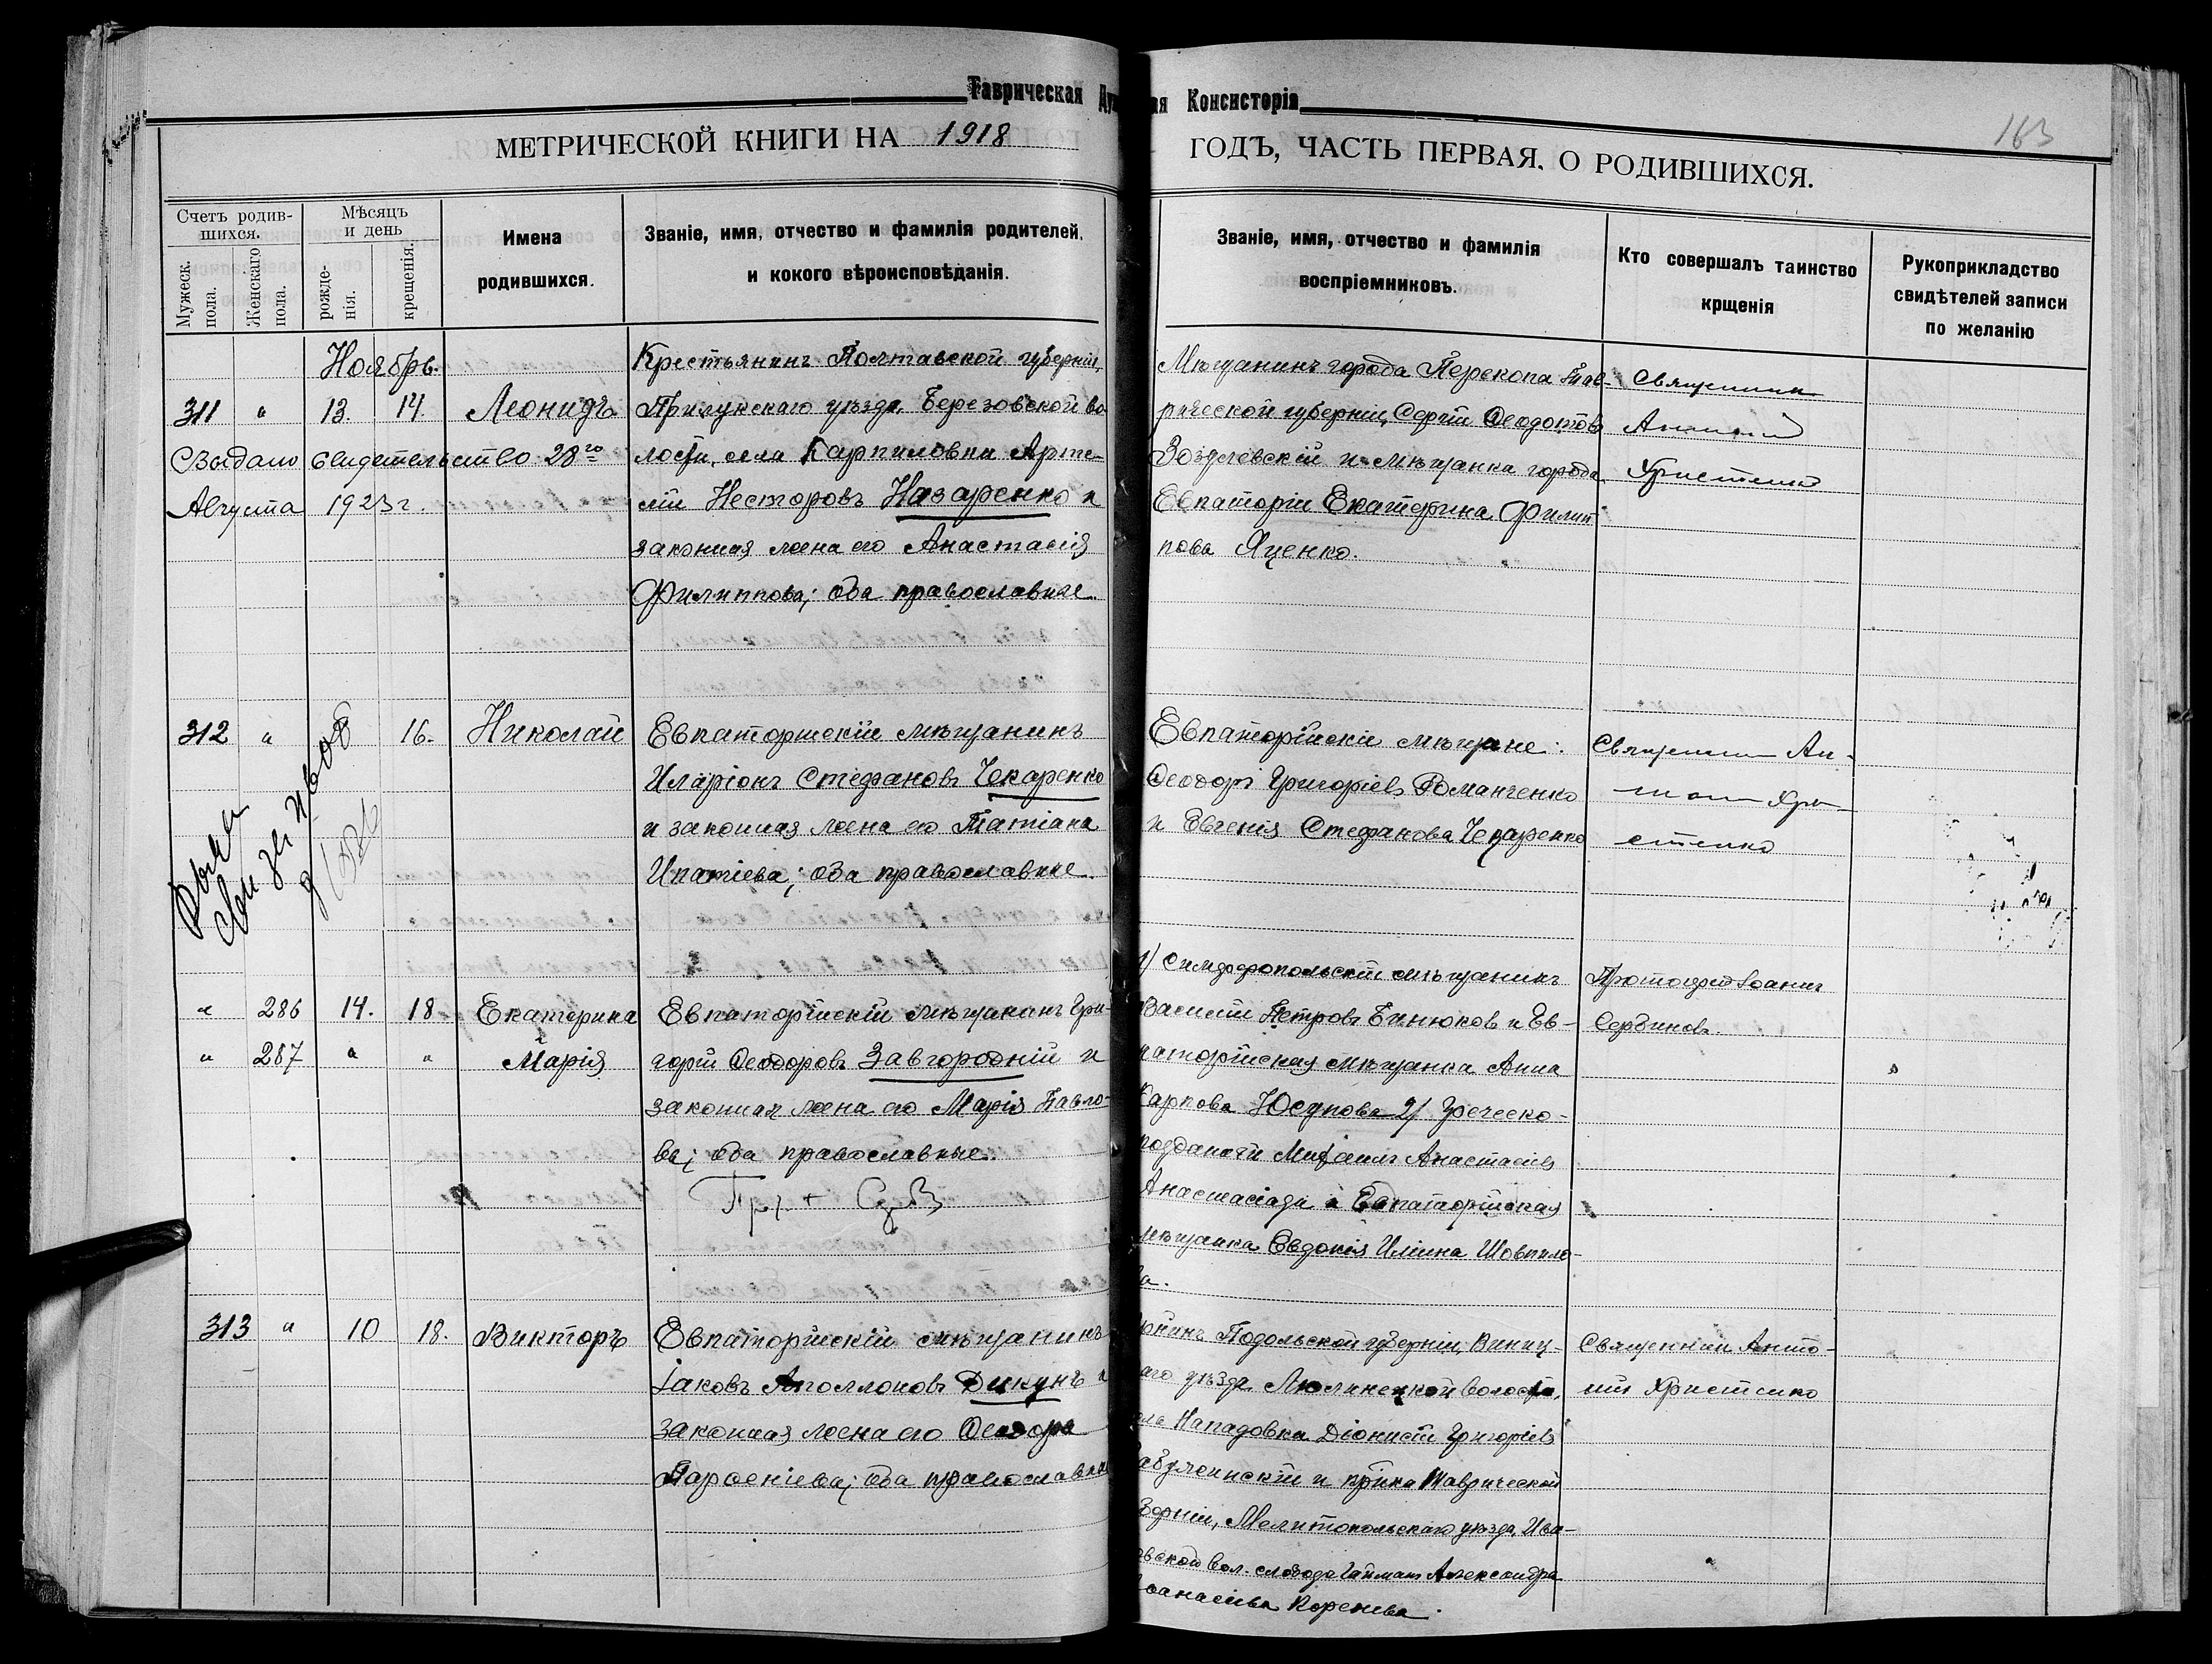 Таврическая Ду
ая Консисторія
163
МЕТРИЧЕСКОЙ КНИГИ НА 1918
ГОДЪ, ЧАСТЬ ПЕРВАЯ, О РОДИВШИХСЯ.
Счетъ родив-
шихся.
Мужеск.
пола.
Женскаго
пола.
Мѣсяцъ
и день
рожде-
нія.
крещенія.
Имена
родившихся.
Званіе, имя, отчество и фамилія родителей,
и кокого вѣроисповѣданія.
Званіе, имя, отчество и фамилія
воспріемниковъ.
Кто совершалъ таинство
крщенія
Рукоприкладство
свидѣтелей записи
по желанію
Ноябрь.
311 " 13. 14. Леонидъ
Выдано свидетельство 28го
Августа 1923 г.
Крестьянинъ Полтавской губерніи,
Прилукскаго уѣзда, Березовской во
лости, села Карпиловки Арте-
мій Несторовъ Назаренко и
законная жена его Анастасія
Филиппова; оба православные.
Мѣщанинъ города Перекопа Тав-
рической губерніи, Сергій Ѳеодотов
Зозулевскій и мѣщанка города
Евпаторіи Екатерина Филип
пова Яценко.
Священник
Антоній
Христенко
312 " 16. Николай
Евпаторійскій мѣщанинъ
Иларіонъ Стефановъ Чекаренко
и законная жена его Татіана
Ипатіева; оба православные.
Евпаторійскіе мѣщане:
Ѳеодоръ Григоріевъ Романченко
и Евгенія Стефанова Чекаренко
Священник Ан-
тоній Хри-
стенко
" 286 14. 18 Екатерина
и
" 287 " " Марія
Евпаторійскій мѣщанинъ Гри-
горій Ѳеодоровъ Завгородній и
законная жена его Марія Павло-
ва; оба православные.
1) Симферопольскій мѣщанинъ
Василій Петровъ Бинюков и Ев-
паторійская мѣщанка Анна
Карпова Юсупова 2) Греческо-
подданный Михаилъ Анастасіев
Анастасіади и Евпаторійская
мѣщанка Евдокія Иліина Шовкопло-
ва.
Протоіерей Іоаннъ
Сербинов.
313 " 10 18. Викторъ
Евпаторійскій мѣщанинъ
Іаковъ Аполлоновъ Дикунъ и
законная жена его Ѳеодора
Парѳеніева; оба православные
Подольской губерніи, Виниц-
аго уѣзда, Люлинецкой волости,
ела Нападовка Діонисій Григоріевъ
и кр-нка Таврической
берніи, Мелитопольскаго уѣзда, Ива-
овской вол. слобода Гайман Александра
ѳанасіева Коренева.
Священник Анто-
ній Христенко